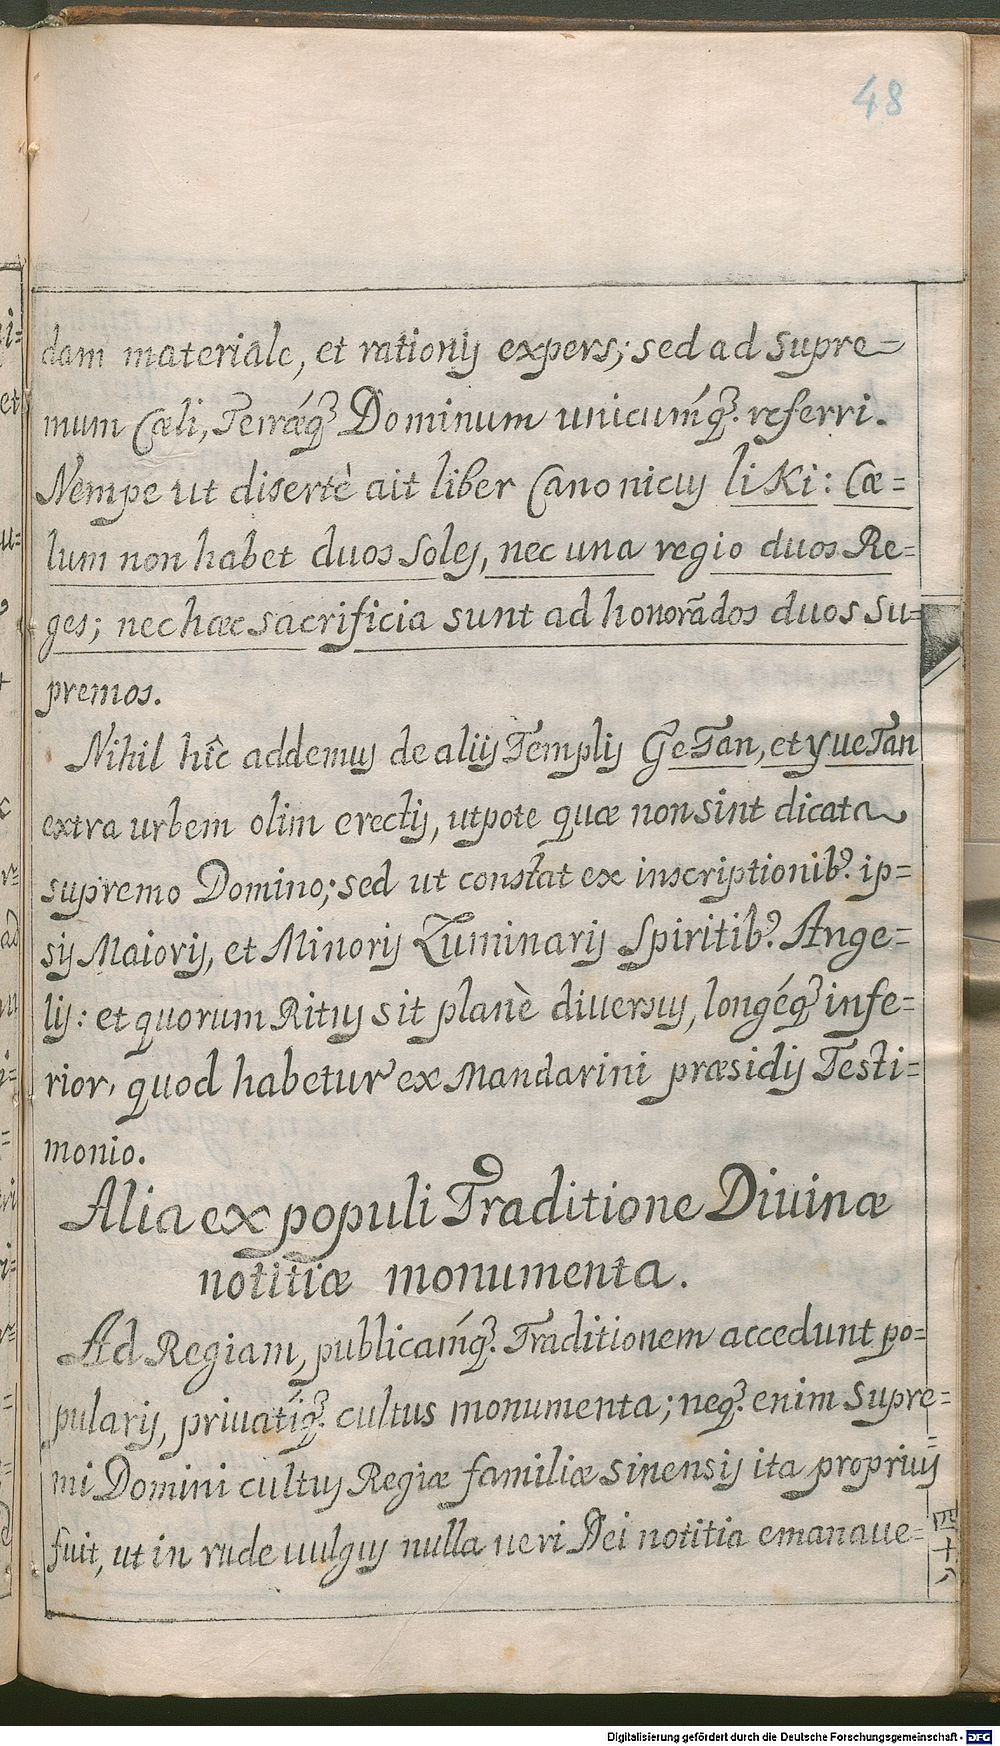 48
dam materiale, et rationis expers; sed ad Supre=
mum Cœli, Terræq́ꝫ Dominum unicumq́ꝫ. referri.
Nempe ut disertè ait liber Canonicus li Ki: Cœ=
lum non habet duos Soles, nec una regio duos Re=
ges; nec hæc sacrificia sunt ad honorãdos duos Su=
premos.
Nihil hîc addemus de aliis Templis Ge Tan, et yue Tan
extra urbem olim erectis, utpote quæ non sint dicata
supremo Domino; sed ut constat ex inscriptionibꝰ. ip=
sis Maioris, et Minoris Luminaris Spiritibꝰ. Ange=
lis: et quorum Ritus sit planè diversus, longéqꝫ infe=
rior, quod habetur ex Mandarini præsidis Testi=
monio.
Alia ex populi Traditione Divinæ
notitiæ monumenta.
Ad Regiam, publicamq́ꝫ. Traditionem accedunt po=
pularis, privatiq́ꝫ. cultus monumenta; neqꝫ. enim Supre=
mi Domini cultus Regiæ familiæ Sinensis ita proprius
fuit, ut in rude uulgus nulla veri Dei notitia emanaue=
四十八
Digitalisierung gefördert durch die Deutsche Forschungsgemeinschaft - DFG